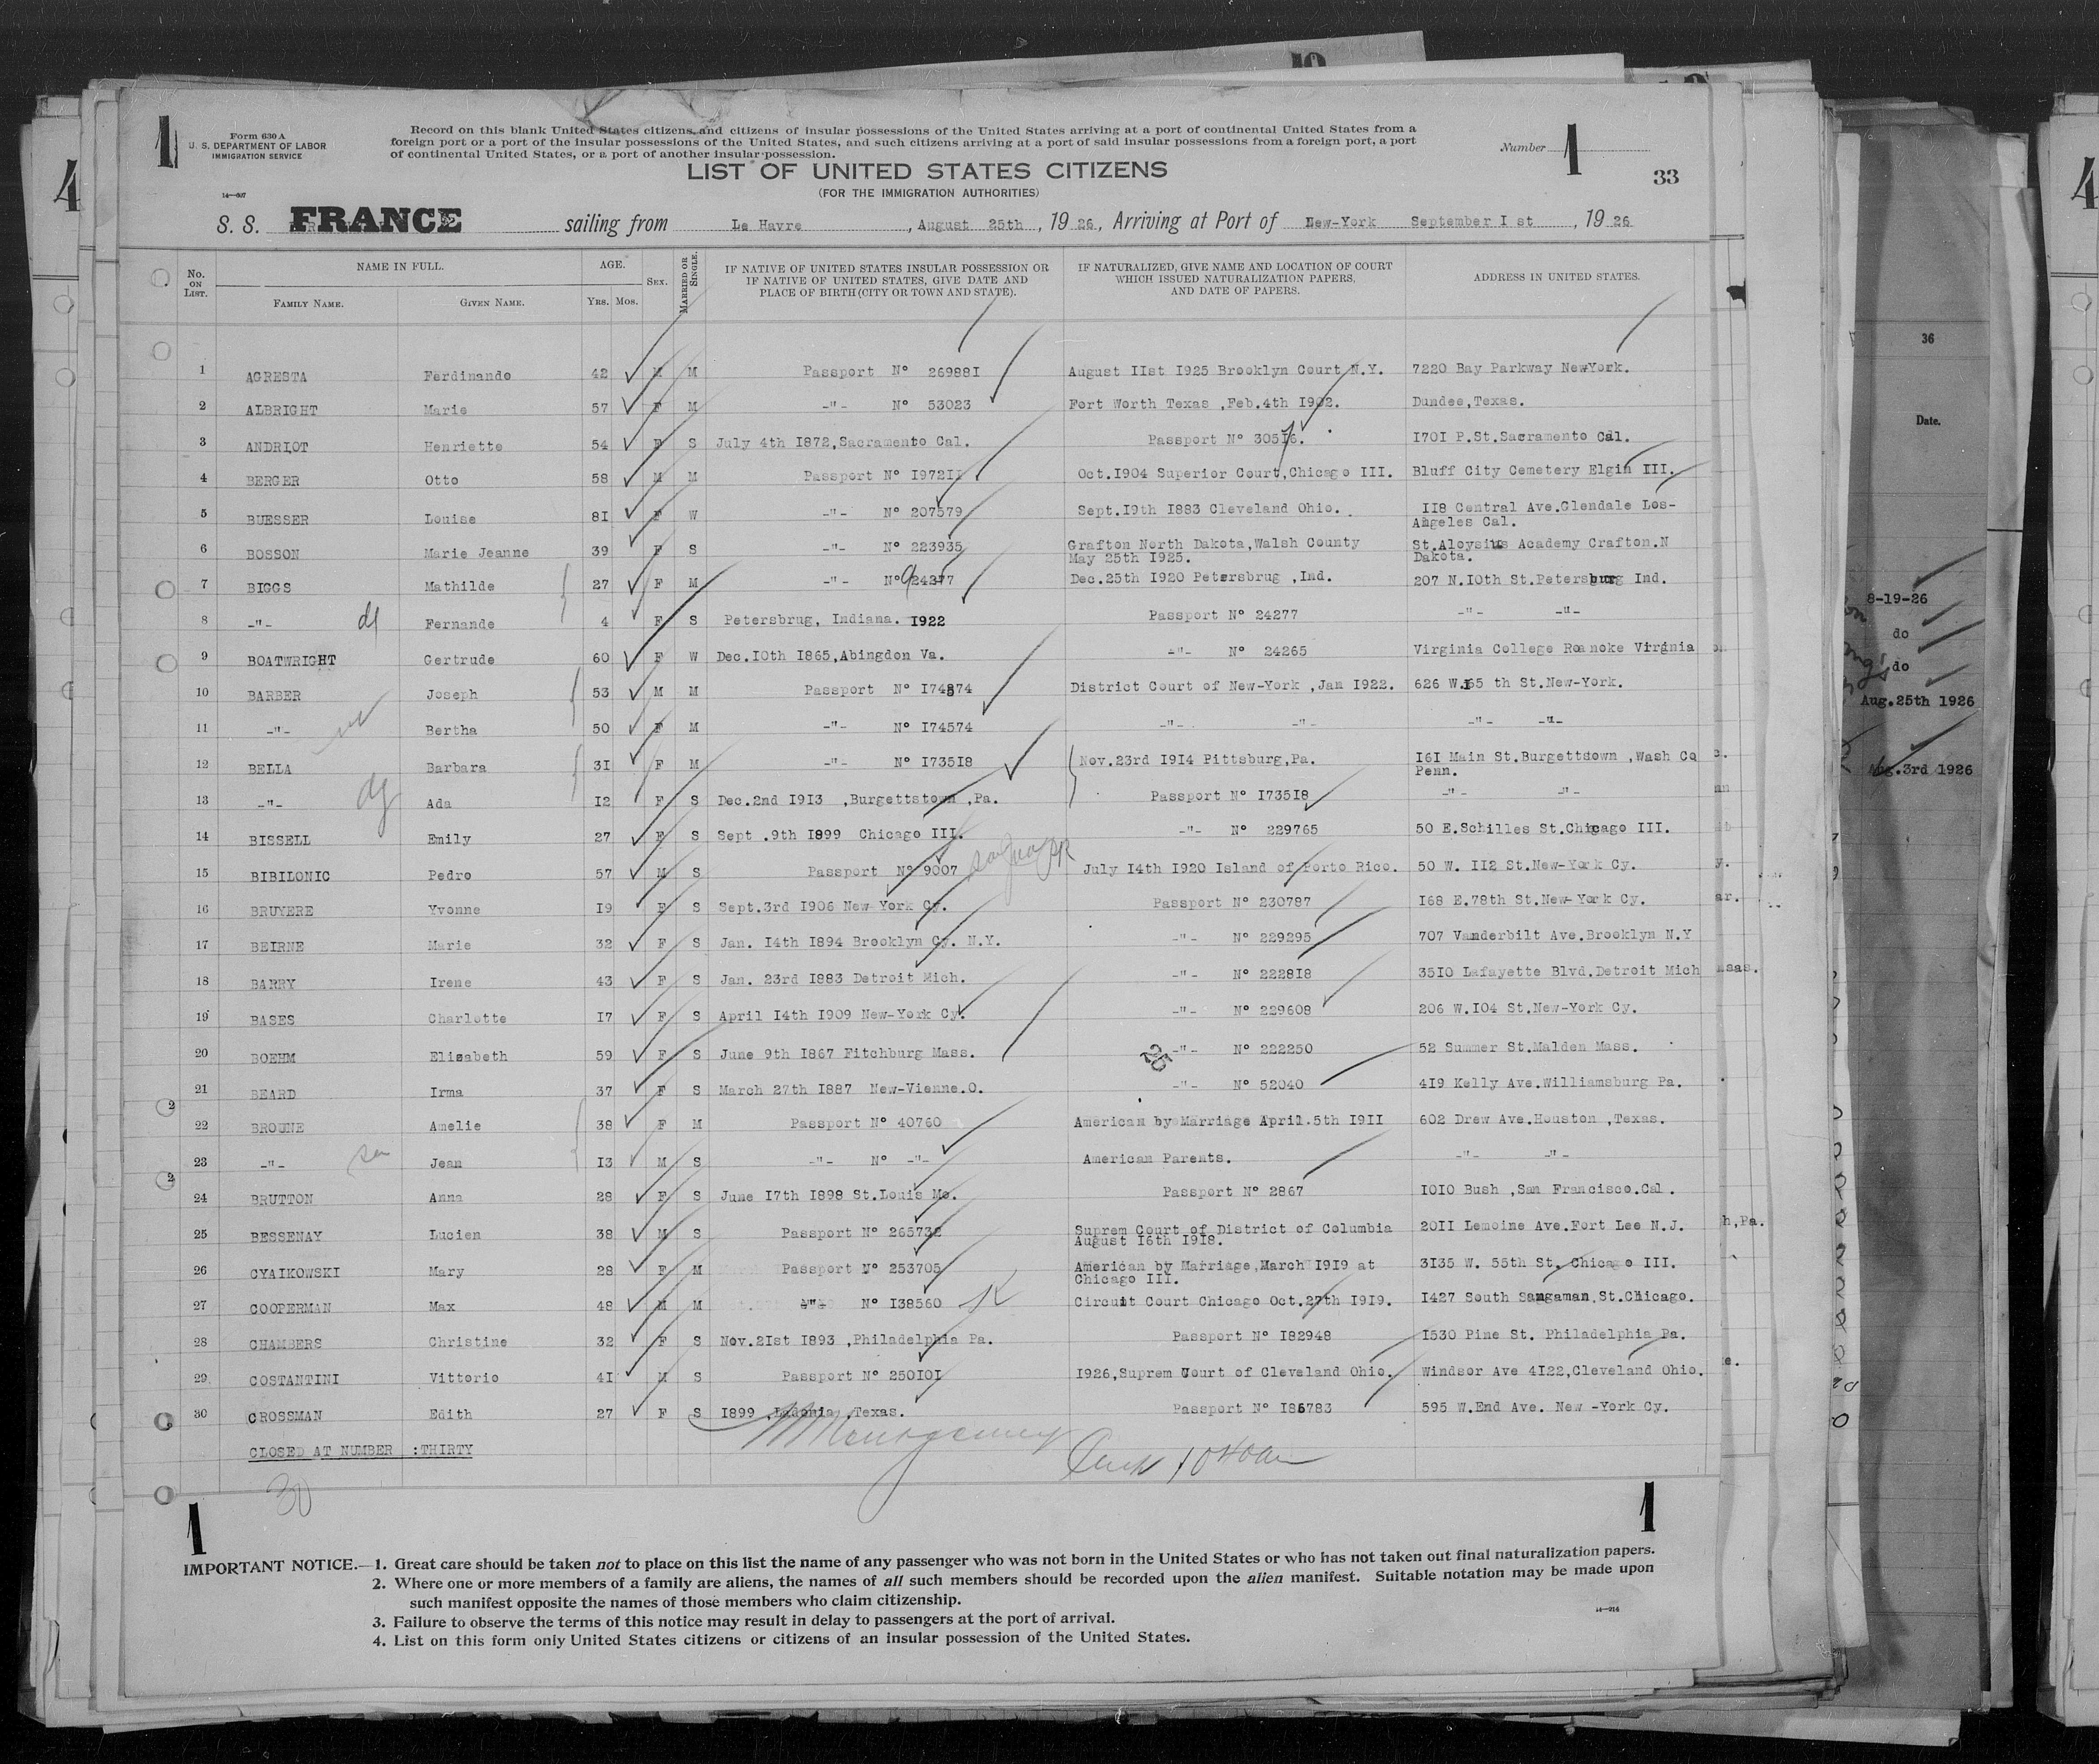 1
Form 630 A
U. S. DEPARTMENT OF LABOR
IMMIGRATION SERVICE
14—607
Record on this blank United States citizens and citizens of insular possessions of the United States arriving at a port of continental United States from a
foreign port or a port of the insular possessions of the United States, and such citizens arriving at a port of said insular possessions from a foreign port, a port
of continental United States, or a port of another insular possession.
Number 1
33
LIST OF UNITED STATES CITIZENS
(FOR THE IMMIGRATION AUTHORITIES)
S. S. FRANCE sailing from Le Havre, August 25th, 19 26, Arriving at Port of New-York September I st, 19 26
No. ON LIST. NAME IN FULL. FAMILY NAME. GIVEN NAME. AGE. Yrs. Mos. Sex. MARRIED OR SINGLE. IF NATIVE OF UNITED STATES INSULAR POSSESSION OR IF NATIVE OF UNITED STATES, GIVE DATE AND PLACE OF BIRTH (CITY OR TOWN AND STATE). IF NATURALIZED, GIVE NAME AND LOCATION OF COURT WHICH ISSUED NATURALIZATION PAPERS, AND DATE OF PAPERS. ADDRESS IN UNITED STATES.
1 AGRESTA Ferdinando 42 M M Passport N° 26988I August IIst I925 Brooklyn Court N.Y. 7220 Bay Parkway NewYork.
2 ALBRIGHT Marie 57 F M -"- N° 53023 Fort Worth Texas ,Feb.4th I902. Dundee,Texas.
3 ANDRIOT Henriette 54 F S July 4th I872,Sacramento Cal. Passport N° 305I6. I70I P.St.Sacramento Cal.
4 BERGER Otto 58 M M Passport N° I972II Oct.I904 Superior Court,Chicago III. Bluff City Cemetery Elgin III.
5 BUESSER Louise 8I F W -"- N° 207579 Sept.I9th I883 Cleveland Ohio. II8 Central Ave.Glendale Los-
Angeles Cal.
6 BOSSON Marie Jeanne 39 F S -"- N° 223935 Grafton North Dakota,Walsh County St.Aloysius Academy Crafton.N
May 25th I925. Dakota.
7 BIGGS Mathilde 27 F M -"- N° 24277 Dec.25th I920 Petersbrug ,Ind. 207 N.IOth St.Petersburg Ind.
8 -"- Fernande 4 F S Petersbrug, Indiana. 1922 Passport N° 24277 -"- -"-
9 BOATWRIGHT Gertrude 60 F W Dec.IOth I865,Abingdon Va. -"- N° 24265 Virginia College Roanoke Virginia
10 BARBER Joseph 53 M M Passport N° I74574 District Court of New-York ,Jan I922. 626 W.I65 th St.New-York.
11 -"- Bertha 50 F M -"- N° I74574 -"- -"- -"- -"-
12 BELLA Barbara 3I F M -"- N° I735I8 Nov.23rd I9I4 Pittsburg,Pa. I6I Main St.Burgettsown ,Wash Co
Penn.
13 -"- Ada I2 F S Dec.2nd I9I3 ,Burgettstown ,Pa. Passport N° I735I8 -"- -"-
14 BISSELL Emily 27 F S Sept .9th I899 Chicago III. -"- N° 229765 50 E.Schilles St.Chicago III.
15 BIBILONIC Pedro 57 M S Passport N° 9007 July I4th I920 Island of Porto Rico. 50 W. II2 St.New-York Cy.
16 BRUYERE Yvonne I9 F S Sept.3rd I906 New-York Cy. Passport N° 230787 I68 E.78th St.New-York Cy.
17 BEIRNE Marie 32 F S Jan. I4th I894 Brooklyn Cy. N.Y. -"- N° 229295 707 Vanderbilt Ave.Brooklyn N.Y
18 BARRY Irene 43 F S Jan. 23rd I883 Detroit Mich. -"- N° 2228I8 35IO Lafayette Blvd.Detroit Mich
19 BASES Charlotte I7 F S April I4th I909 New-York Cy. -"- N° 229608 206 W.IO4 St.New-York Cy.
20 BOEHM Elisabeth 59 F S June 9th I867 Fitchburg Mass. -"- N° 222250 52 Summer St.Malden Mass.
21 BEARD Irma 37 F S March 27th I887 New-Vienne.O. -"- N° 52040 4I9 Kelly Ave.Williamsburg Pa.
22 BROUNE Amelie 38 F M Passport N° 40760 American by Marriage April.5th I9II 602 Drew Ave.Houston ,Texas.
23 -"- Jean I3 M S -"- N° -"- American Parents. -"- -"-
24 BRUTTON Anna 28 F S June I7th I898 St.Louis Mo. Passport N° 2867 IOIO Bush ,San Francisco.Cal.
25 BESSENAY Lucien 38 M S Passport N° 265732 Suprem Court of District of Columbia 20II Lemoine Ave.Fort Lee N.J.
August I6th I9I8.
26 CYAIKOWSKI Mary 28 F M Passport N° 253705 American by Marriage,March I9I9 at 3I35 W. 55th St. Chicago III.
Chicago III.
27 COOPERMAN Max 48 M M -"- N° I38560 Circuit Court Chicago Oct.27th I9I9. I427 South Sangaman,St.Chicago.
28 CHAMBERS Christine 32 F S Nov.2Ist I893 ,Philadelphia Pa. Passport N° I82948 I530 Pine St. Philadelphia Pa.
29 COSTANTINI Vittorio 4I M S Passport N° 250IOI I926,Suprem Court of Cleveland Ohio. Windsor Ave 4I22,Cleveland Ohio.
30 CROSSMAN Edith 27 F S I899 ,Ladonia ,Texas. Passport N° I86783 595 W.End Ave. New -York Cy.
CLOSED AT NUMBER :THIRTY
30
1
1
IMPORTANT NOTICE.—1. Great care should be taken not to place on this list the name of any passenger who was not born in the United States or who has not taken out final naturalization papers.
2. Where one or more members of a family are aliens, the names of all such members should be recorded upon the alien manifest. Suitable notation may be made upon
such manifest opposite the names of those members who claim citizenship.
3. Failure to observe the terms of this notice may result in delay to passengers at the port of arrival.
4. List on this form only United States citizens or citizens of an insular possession of the United States.
36
Date.
8-19-26
do
do
Aug.25th 1926
Aug.3rd 1926
4
4